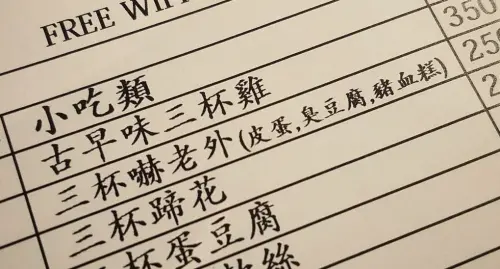 FREE
350
小吃類
250
古早味三杯雞
三杯嚇老外(皮蛋,臭豆腐,豬血糕)
三杯蹄花
杯蛋豆腐
絲